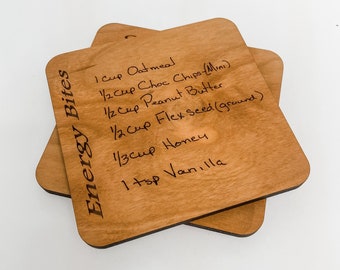 Energy Bites
1 cup Oatmeal
1/2 cup Choc Chips (Mini)
1/2 cup Peanut Butter
1/2 cup Flex seed (ground)
1/3 cup Honey
1 tsp Vanilla